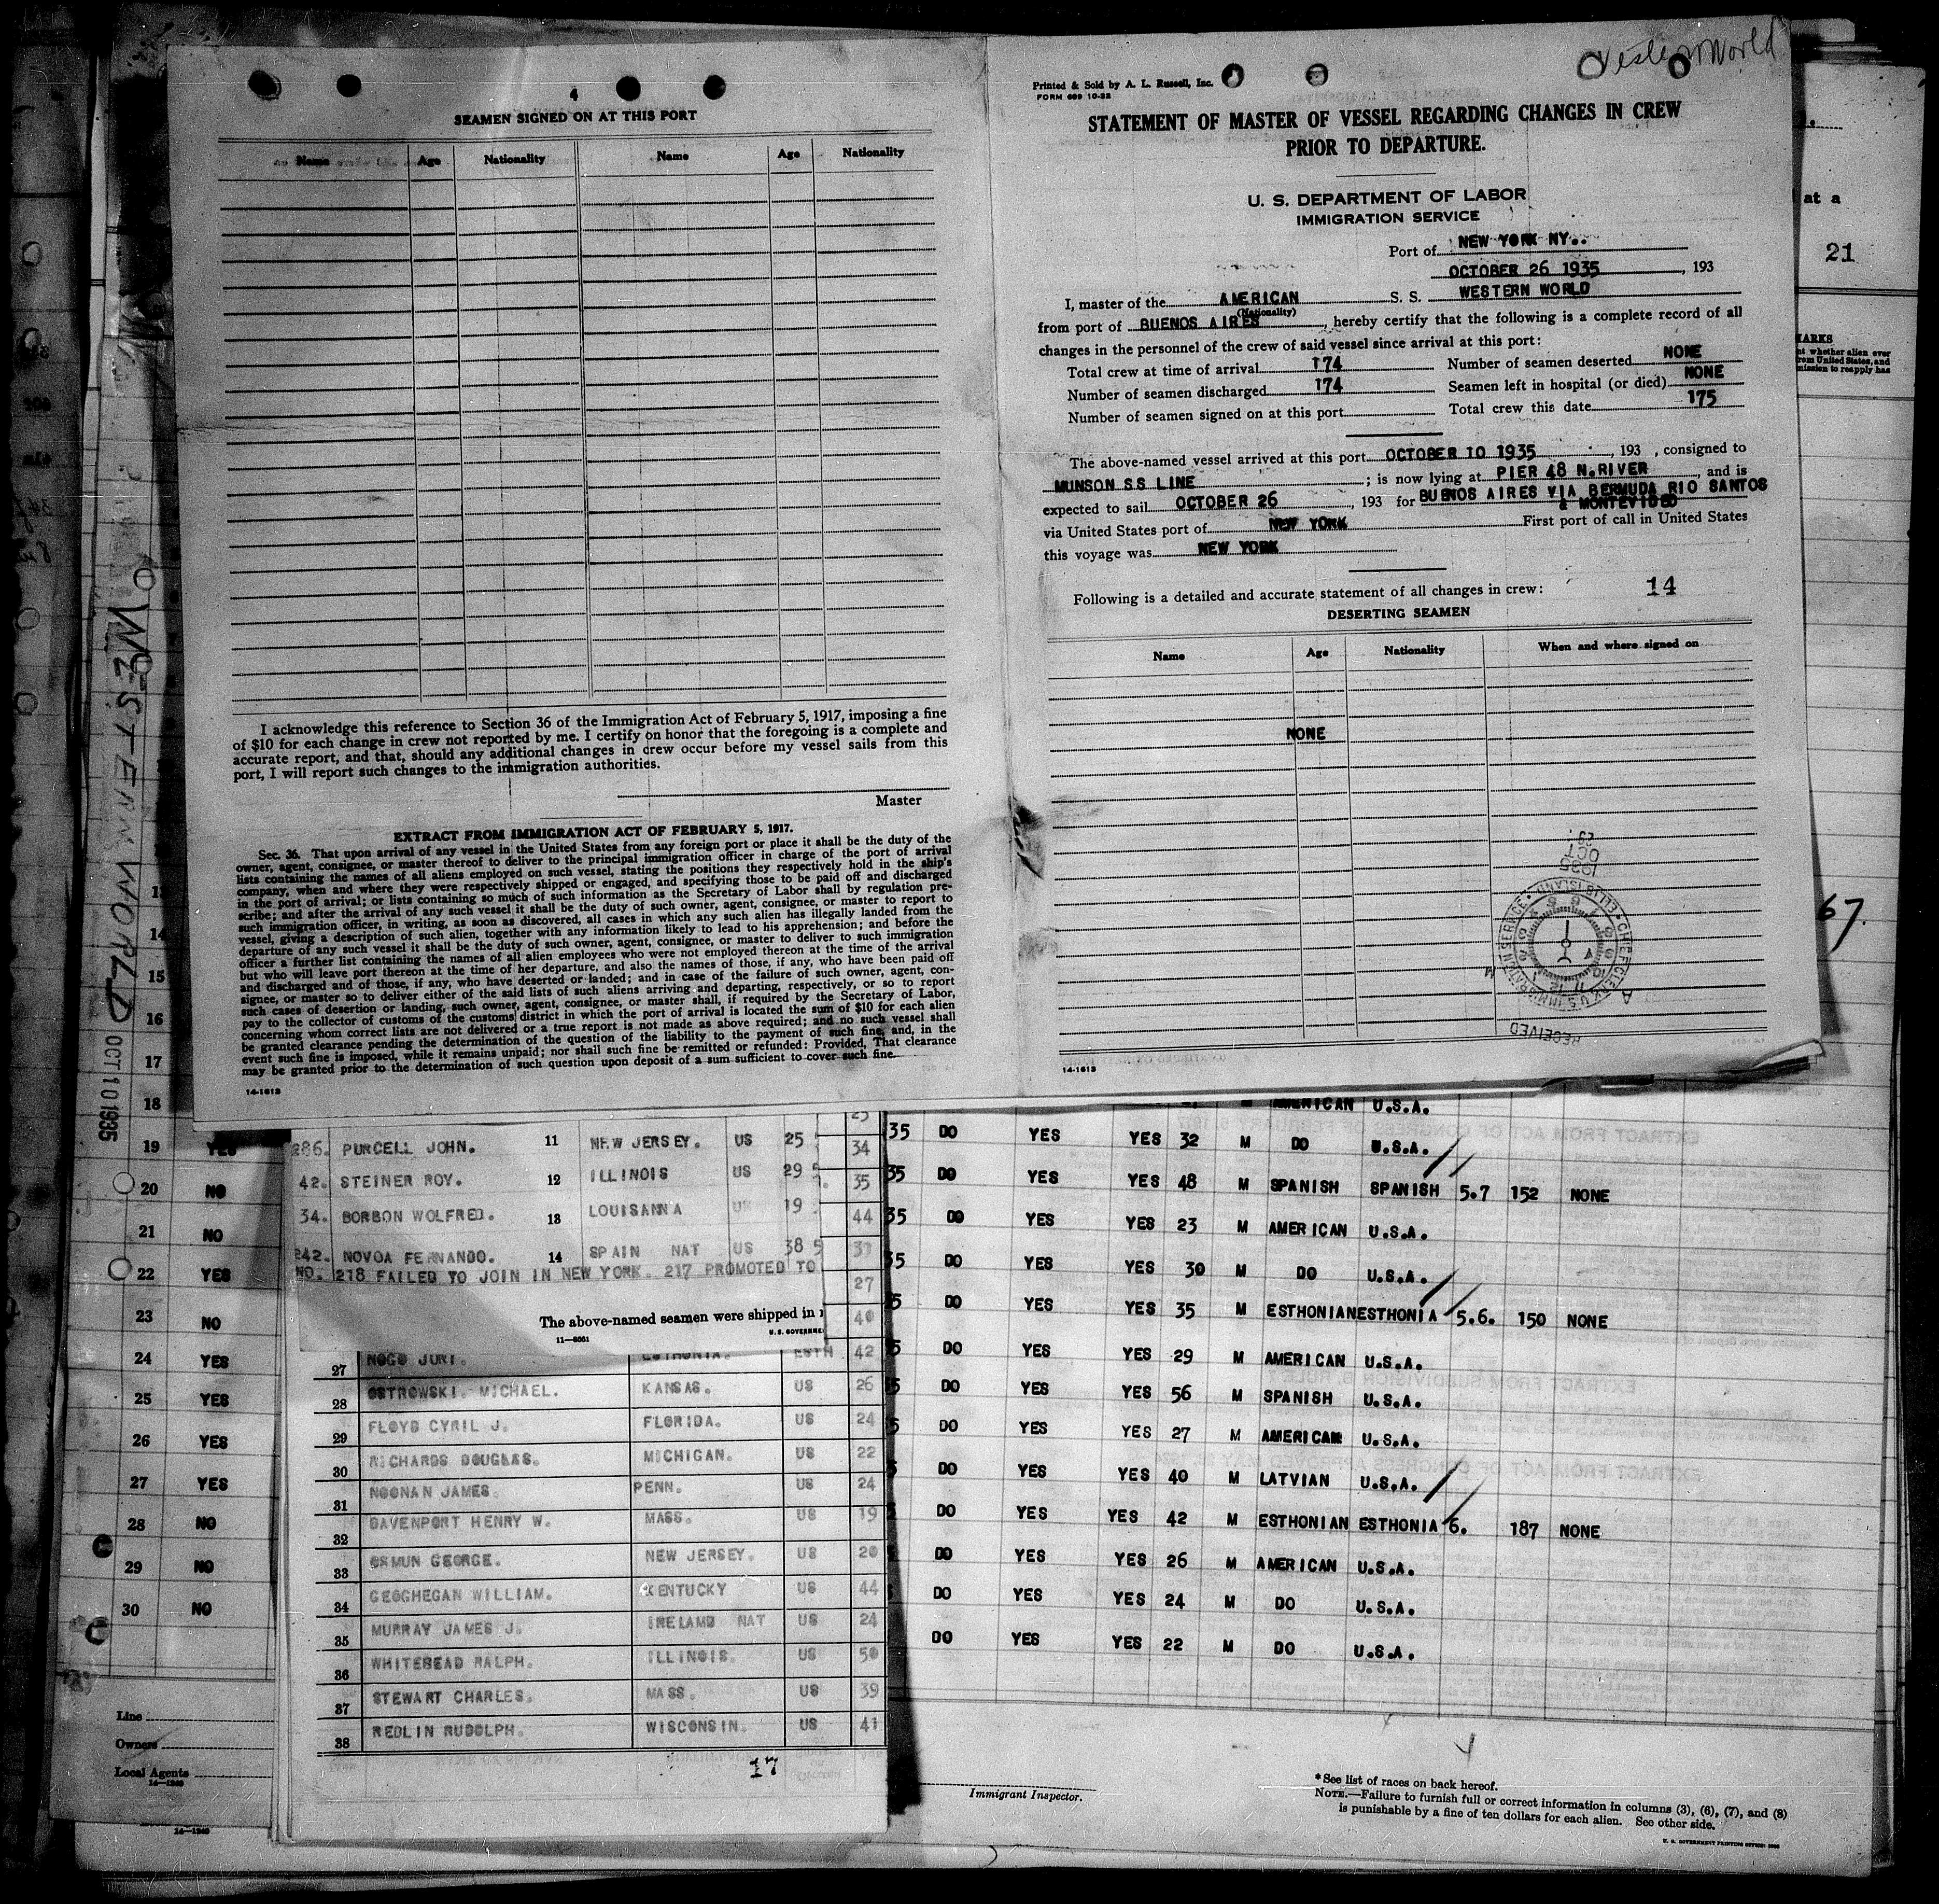 4
SEAMEN SIGNED ON AT THIS PORT
Name Age Nationality Name Age Nationality
I acknowledge this reference to Section 36 of the Immigration Act of February 5, 1917, imposing a fine
of $10 for each change in crew not reported by me. I certify on honor that the foregoing is a complete and
accurate report, and that, should any additional changes in crew occur before my vessel sails from this
port, I will report such changes to the immigration authorities.
Master
EXTRACT FROM IMMIGRATION ACT OF FEBRUARY 5, 1917.
Sec. 36. That upon arrival of any vessel in the United States from any foreign port or place it shall be the duty of the
owner, agent, consignee, or master thereof to deliver to the principal immigration officer in charge of the port of arrival
lists containing the names of all aliens employed on such vessel, stating the positions they respectively hold in the ship's
company, when and where they were respectively shipped or engaged, and specifying those to be paid off and discharged
in the port of arrival; or lists containing so much of such information as the Secretary of Labor shall by regulation pre-
scribe; and after the arrival of any such vessel it shall be the duty of such owner, agent, consignee, or master to report to
such immigration officer, in writing, as soon as discovered, all cases in which any such alien has illegally landed from the
vessel, giving a description of such alien, together with any information likely to lead to his apprehension; and before the
departure of any such vessel it shall be the duty of such owner, agent, consignee, or master to deliver to such immigration
officer a further list containing the names of all alien employees who were not employed thereon at the time of the arrival
but who will leave port thereon at the time of her departure, and also the names of those, if any, who have been paid off
and discharged and of those, if any, who have deserted or landed; and in case of the failure of such owner, agent, con-
signee, or master so to deliver either of the said lists of such aliens arriving and departing, respectively, or so to report
such cases of desertion or landing, such owner, agent, consignee, or master shall, if required by the Secretary of Labor,
pay to the collector of customs of the customs district in which the port of arrival is located the sum of $10 for each alien
concerning whom correct lists are not delivered or a true report is not made as above required; and no such vessel shall
be granted clearance pending the determination of the question of the liability to the payment of such fine, and, in the
event such fine is imposed, while it remains unpaid; nor shall such fine be remitted or refunded: Provided, That clearance
may be granted prior to the determination of such question upon deposit of a sum sufficient to cover such fine.
14-1613
Western World
Printed & Sold by A. L. Russell, Inc.
FORM 689 10-32
STATEMENT OF MASTER OF VESSEL REGARDING CHANGES IN CREW
PRIOR TO DEPARTURE.
U. S. DEPARTMENT OF LABOR
IMMIGRATION SERVICE
Port of NEW YORK NY..
OCTOBER 26 1935, 193
I, master of the AMERICAN S. S. WESTERN WORLD
(Nationality)
from port of BUENOS AIRES, hereby certify that the following is a complete record of all
changes in the personnel of the crew of said vessel since arrival at this port:
Total crew at time of arrival 174 Number of seamen deserted NONE
Number of seamen discharged 174 Seamen left in hospital (or died) NONE
Number of seamen signed on at this port Total crew this date 175
The above-named vessel arrived at this port OCTOBER 10 1935, 193 , consigned to
MUNSON SS LINE ; is now lying at PIER 48 N.RIVER, and is
expected to sail OCTOBER 26, 193 for BUENOS AIRES VIA BERMUDA RIO SANTOS
& MONTEVIDEO
via United States port of NEW YORK First port of call in United States
this voyage was NEW YORK
Following is a detailed and accurate statement of all changes in crew: 14
DESERTING SEAMEN
Name Age Nationality When and where signed on
NONE
1935
OCT
RECEIVED
CHIEF CLERK U.S. IMMIGRATION SERVICE ELLIS ISLAND
14-1613
at a
21
67.
WESTERN WORLD OCT 10 1935
14
15
16
17
18
19 YES
20 NO
21 NO
22 YES
23 NO
24 YES
25 YES
26 YES
27 YES
28 NO
29 NO
30 NO
Line
Owners
Local Agents
14-1240
286. PURCELL JOHN. 11 NEW JERSEY. US 25
42. STEINER ROY. 12 ILLINOIS US 29
34. BORBON WOLFRED. 13 LOUISANNA US 19
242. NOVOA FERNANDO. 14 SPAIN NAT US 38
NO. 218 FAILED TO JOIN IN NEW YORK. 217 PROMOTED TO
The above-named seamen were shipped in
11-8061 U.S. GOVERNME
34
35
44
27
40
27 NOGO JURI. ESTHONIA. ESTH 42
28 OSTROWSKI. MICHAEL. KANSAS. US 26
29 FLOYD CYRIL J. FLORIDA. US 24
30 RICHARDS DOUGLAS. MICHIGAN. US 22
31 NOONAN JAMES. PENN. US 24
32 DAVENPORT HENRY W. MASS. US 19
33 ORMUN GEORGE. NEW JERSEY. US 20
34 GEOGHEGAN WILLIAM. KENTUCKY US 44
35 MURRAY JAMES J. IRELAND NAT US 24
36 WHITEHEAD RALPH. ILLINOIS. US 50
37 STEWART CHARLES. MASS. US 39
38 REDLIN RUDOLPH. WISCONSIN. US 41
17
M AMERICAN U.S.A.
35 DO YES YES 32 M DO U.S.A.
35 DO YES YES 48 M SPANISH SPANISH 5.7 152 NONE
35 DO YES YES 23 M AMERICAN U.S.A.
35 DO YES YES 30 M DO U.S.A.
5 DO YES YES 35 M ESTHONIAN ESTHONIA 5.6. 150 NONE
5 DO YES YES 29 M AMERICAN U.S.A.
5 DO YES YES 56 M SPANISH U.S.A.
5 DO YES YES 27 M AMERICAN U.S.A.
DO YES YES 40 M LATVIAN U.S.A.
DO YES YES 42 M ESTHONIAN ESTHONIA 6. 187 NONE
DO YES YES 26 M AMERICAN U.S.A.
DO YES YES 24 M DO U.S.A.
DO YES YES 22 M DO U.S.A.
Immigrant Inspector.
*See list of races on back hereof.
NOTE.—Failure to furnish full or correct information in columns (3), (6), (7), and (8)
is punishable by a fine of ten dollars for each alien. See other side.
U. S. GOVERNMENT PRINTING OFFICE